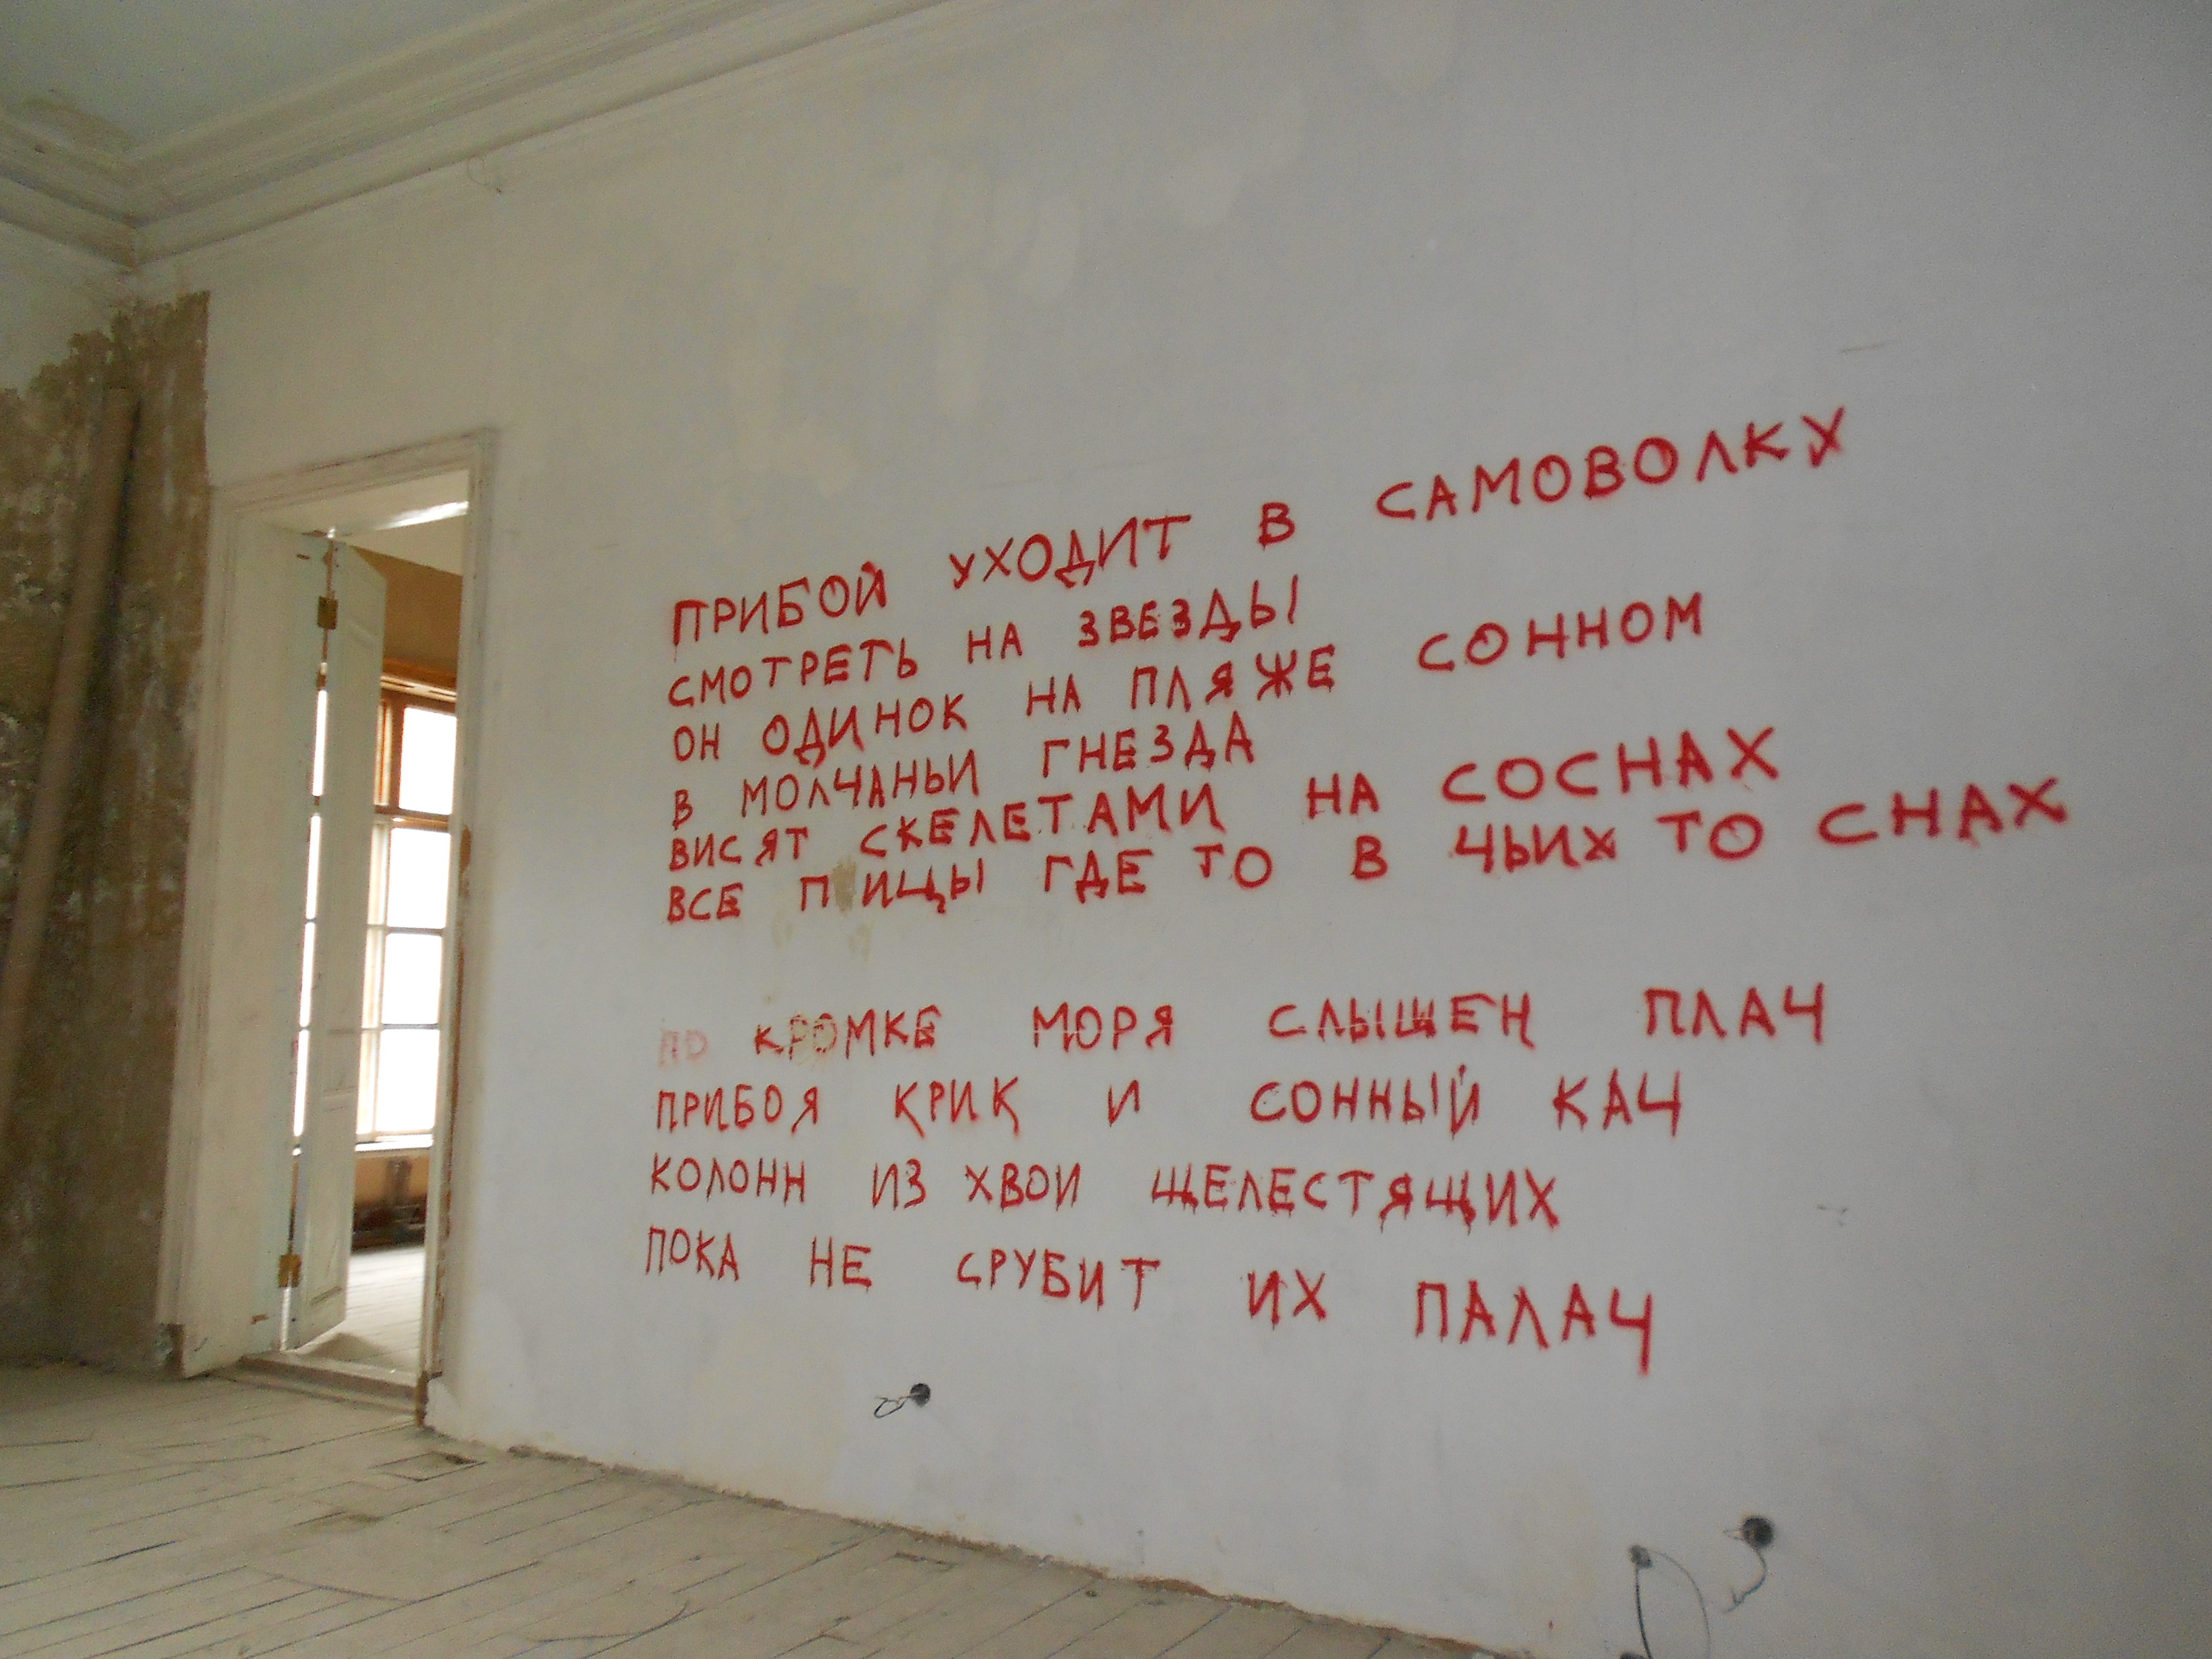 ПРИБОЙ УХОДИТ В САМОВОЛКУ
СМОТРЕТЬ НА ЗВЕЗДЫ
ОН ОДИНОК НА ПЛЯЖЕ СОННОМ
В МОЛЧАНЬИ ГНЕЗДА
ВИСЯТ СКЕЛЕТАМИ НА СОСНАХ
ВСЕ ПТИЦЫ ГДЕ ТО В ЧЬИХ ТО СНАХ
ПО КРОМКЕ МОРЯ СЛЫШЕН ПЛАЧ
ПРИБОЯ КРИК И СОННЫЙ КАЧ
КОЛОНН ИЗ ХВОИ ШЕЛЕСТЯЩИХ
ПОКА НЕ СРУБИТ ИХ ПАЛАЧ